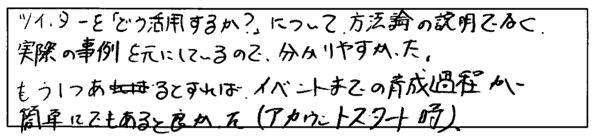 ツイッターを「どう活用するか?」について、方法論の説明でなく、
実際の事例を元にしているので、分かりやすかった。
もう1つあるとすれば、イベントまでの育成過程が
簡単にでもあると良かった(アカウントスタート時)、